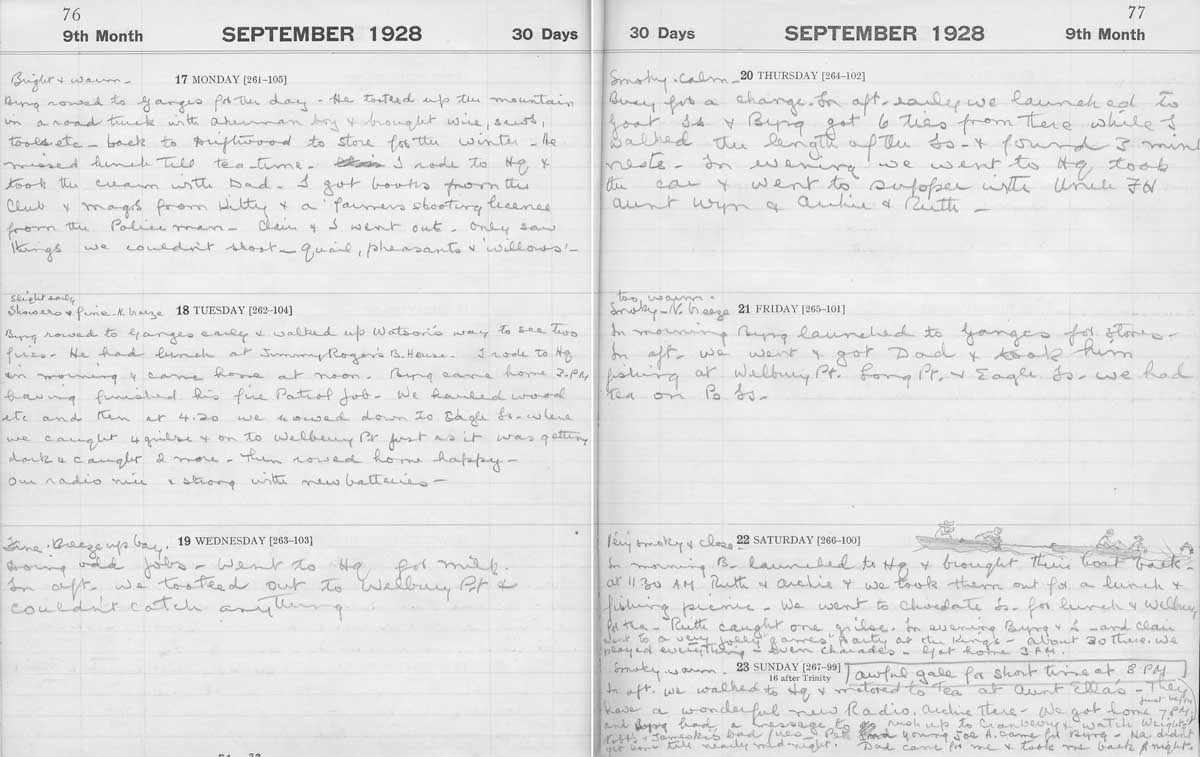 76
9th Month
SEPTEMBER 1928
30 Days
Bright & warm -
17 MONDAY [261-105]
Byng rowed to Ganges for the day - He tootled up the mountain
in a road truck with Akerman boy & brought wire,
tools etc - back to Driftwood to store for the winter - He
missed lunch till tea-time. I rode to Hq &
took the cream with Dad - I got books from the
Club & mags from Kitty & a 'farmers shooting licence
from the Policeman - Clair & I went out. Only saw
things we couldn't shoot - quail, pheasants & 'willows' -
Slight early
Showers & fine N. breeze
18 TUESDAY [262-104]
Byng rowed to Ganges early & walked up Watson's way to see two
fires - He had lunch at Jimmy Roger's B. House - I rode to Hq
in morning & came home at noon. Byng came home 3. PM
having finished his fire Patrol Job - We hauled wood
etc and then at 4.30 we rowed down to Eagle Is - where
we caught 4 grilse & on to Welbury Pt just as it was getting
dark & caught 2 more - Then rowed home happy -
Our radio nice & strong with new batteries -
Fine. Breeze up bay.
19 WEDNESDAY [263-103]
Doing odd jobs - Went to Hq for milk.
In aft. we tootled out to Welbury Pt &
couldn't catch anything
77
30 Days
SEPTEMBER 1928
9th Month
Smoky. calm -
20 THURSDAY [264-102]
Busy for a change. In aft. early we launched to
Goat Is & Byng got 6 ties from there while I
walked the length of the Is - & found 3 mink
nests - In evening we went to Hq took
the car & went to supper with Uncle FH
Aunt Wyn & Archie & Ruth -
too warm.
Smoky - N. breeze
21 FRIDAY [265-101]
In morning Byng launched to Ganges for stores -
In aft. we went & got Dad & took him
fishing at Welbury Pt. Long Pt. & Eagle Is - we had
tea on B. Is -
Very smoky & close
22 SATURDAY [266-100]
In morning B - launched to Hq & brought their boat back -
at 11.30 AM Ruth & Archie & we took them out for a lunch &
fishing picnic - We went to Chocolate Is - for lunch & Welbury
for tea - Ruth caught one grilse. In evening Byng & I - and Clair
went to a very jolly games party at the Kings - about 30 there. We
played everything - even charades - Got home 3 AM.
Smoky warm.
23 SUNDAY [267-99]
16 after Trinity
Awful gale for short time at 8 PM
In aft. we walked to Hq & motored to tea at Aunt Ella's - They
have a wonderful new Radio. Archie there - We got home just before 7 PM
and Byng had a message to rush up to Cranberry & watch
bad fires - and young Joe A. came for Byng - He didn't
get home till nearly mid-night. Dad came for me & took me back for night.